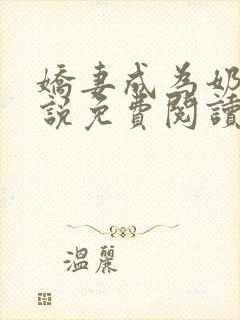 嬌妻成為奶
說免費閱讀
溫麗